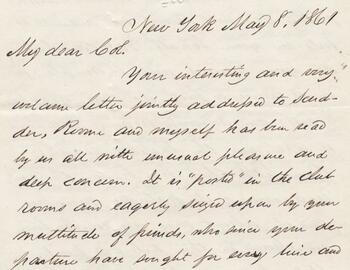 New York May 8, 1861
My dear Col.
Your interesting and very
welcome letter jointly addressed to Scud-
der, Rowe and myself has been read
by us all with unusual pleasure and
deep concern. It is "posted" in the club
rooms and eagerly seized upon by your
multitude of friends, who since your de-
parture have sought for every line and